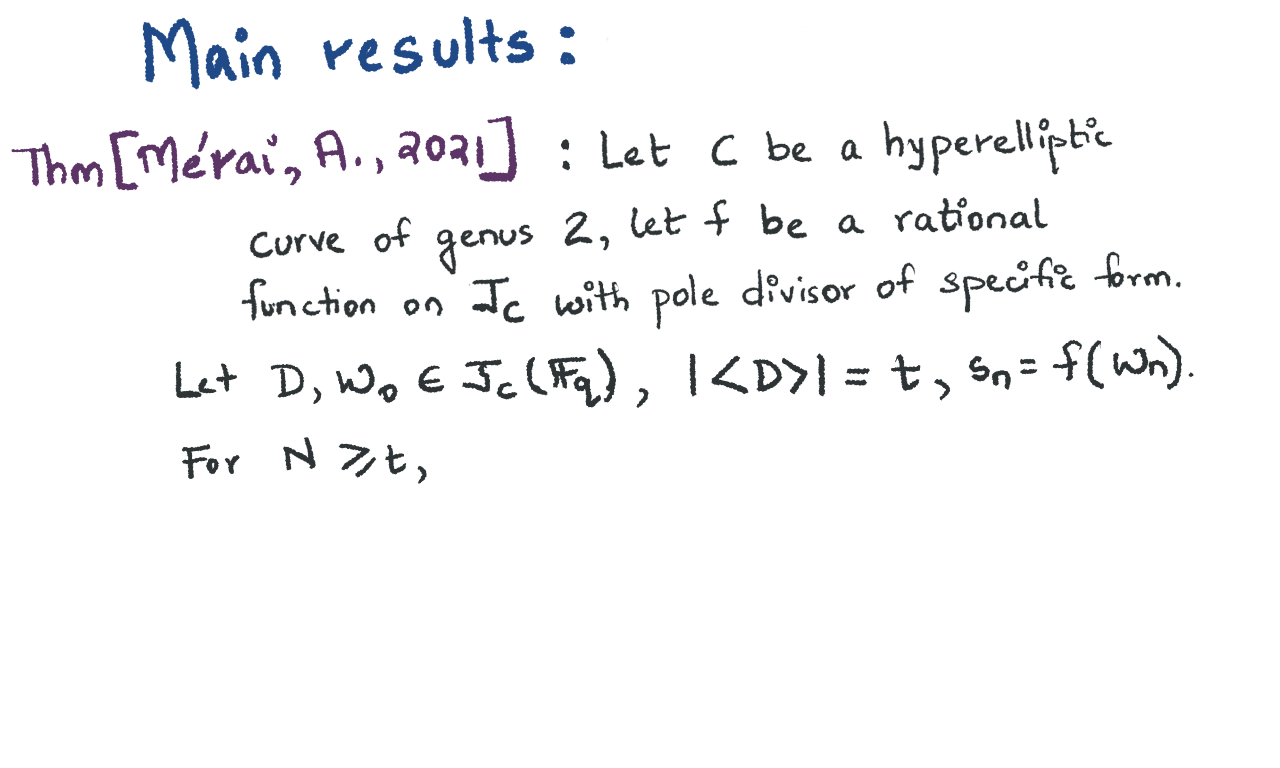 Main results :
Thm [Mérai, A., 2021] : Let C be a hyperelliptic
curve of genus 2, let f be a rational
function on J_C with pole divisor of specific form.
Let D, W_0 ∈ J_C(𝔽_q), |<D>| = t, s_n = f(W_n).
For N ⩾ t,